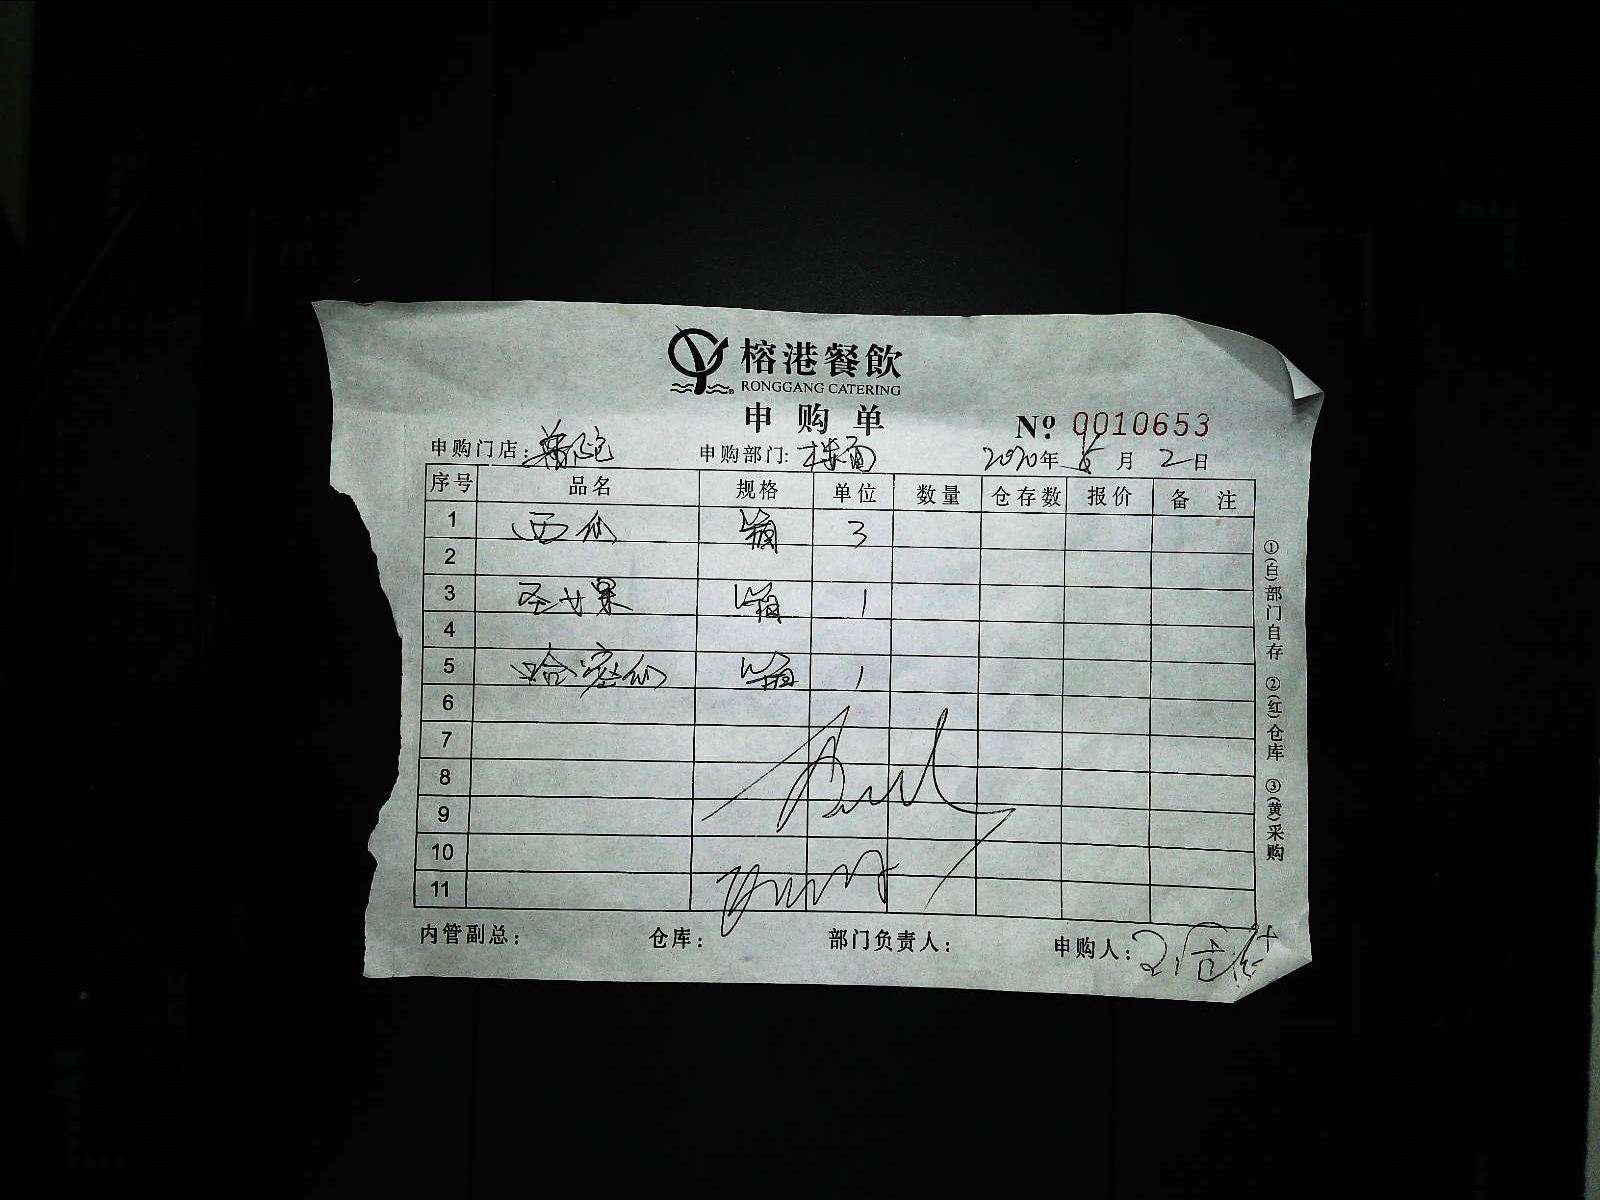 榕港餐飲
RONGGANG CATERING
申购单
Nº 0010653
申购门店：普陀 申购部门：楼面 2020年5月2日
序号 品名 规格 单位 数量 仓存数 报价 备注
1 西仙 箱 3
2
3 圣女果 箱 1
4
5 哈密仙 箱 1
6
7
8
9
10
11
内管副总： 仓库： 部门负责人： 申购人：
①(白)部门自存 ②(红)仓库 ③(黄)采购